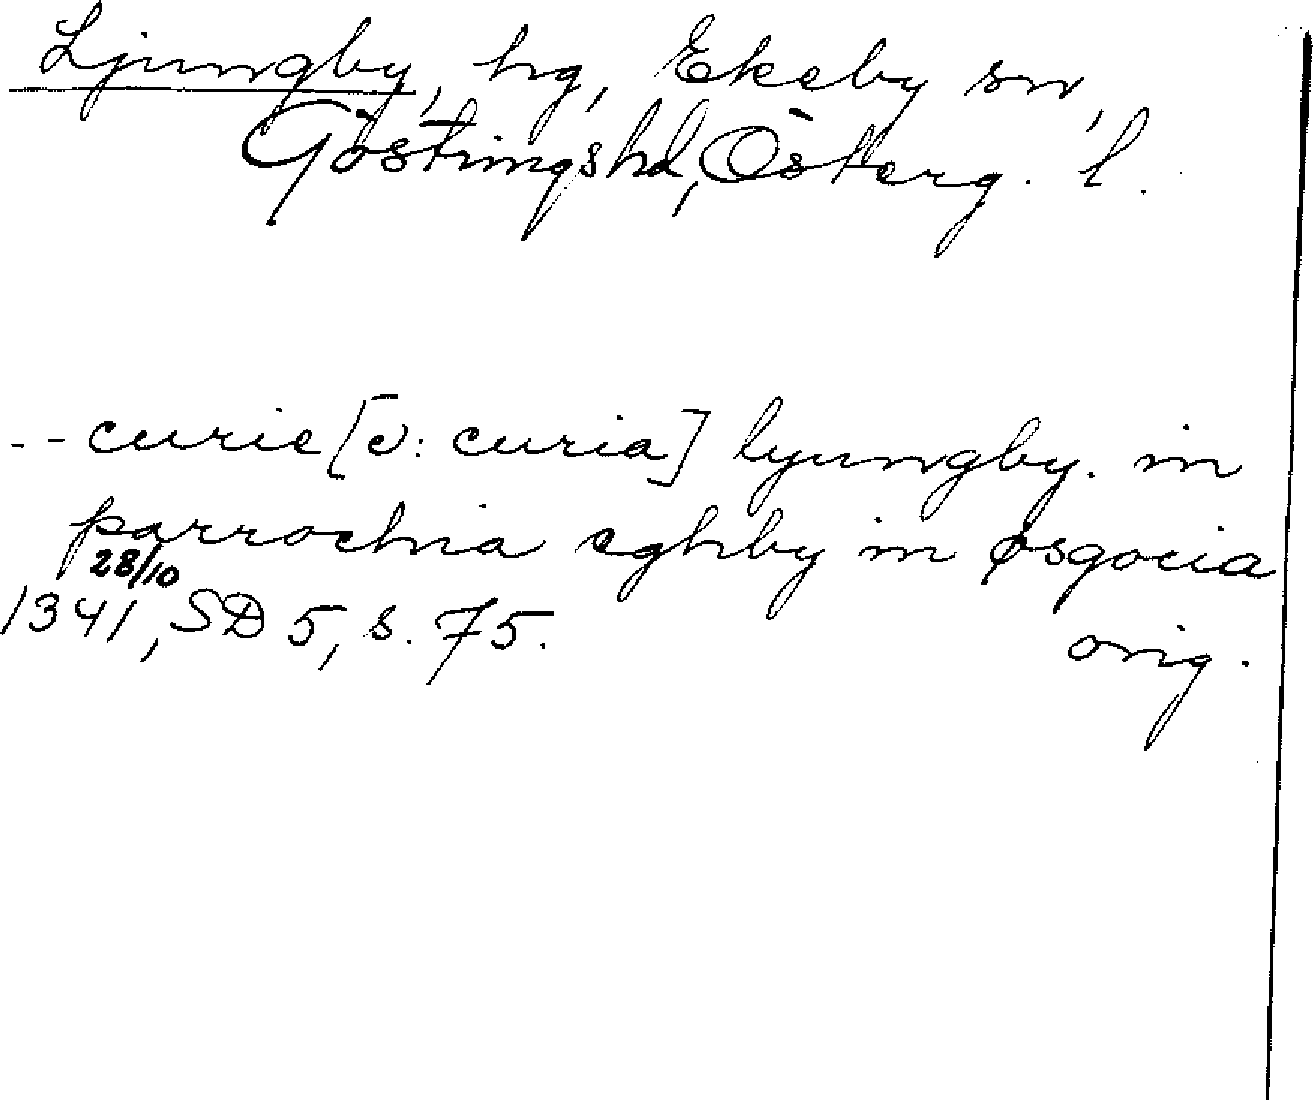 Ljungby, hg, Ekeby sn,
Göstringshd, Österg. l.
-- curie [ɔ: curia] lyungby. in
parrochia eghby in øsgocia
28/10
1341, SD 5, s. 75. orig.